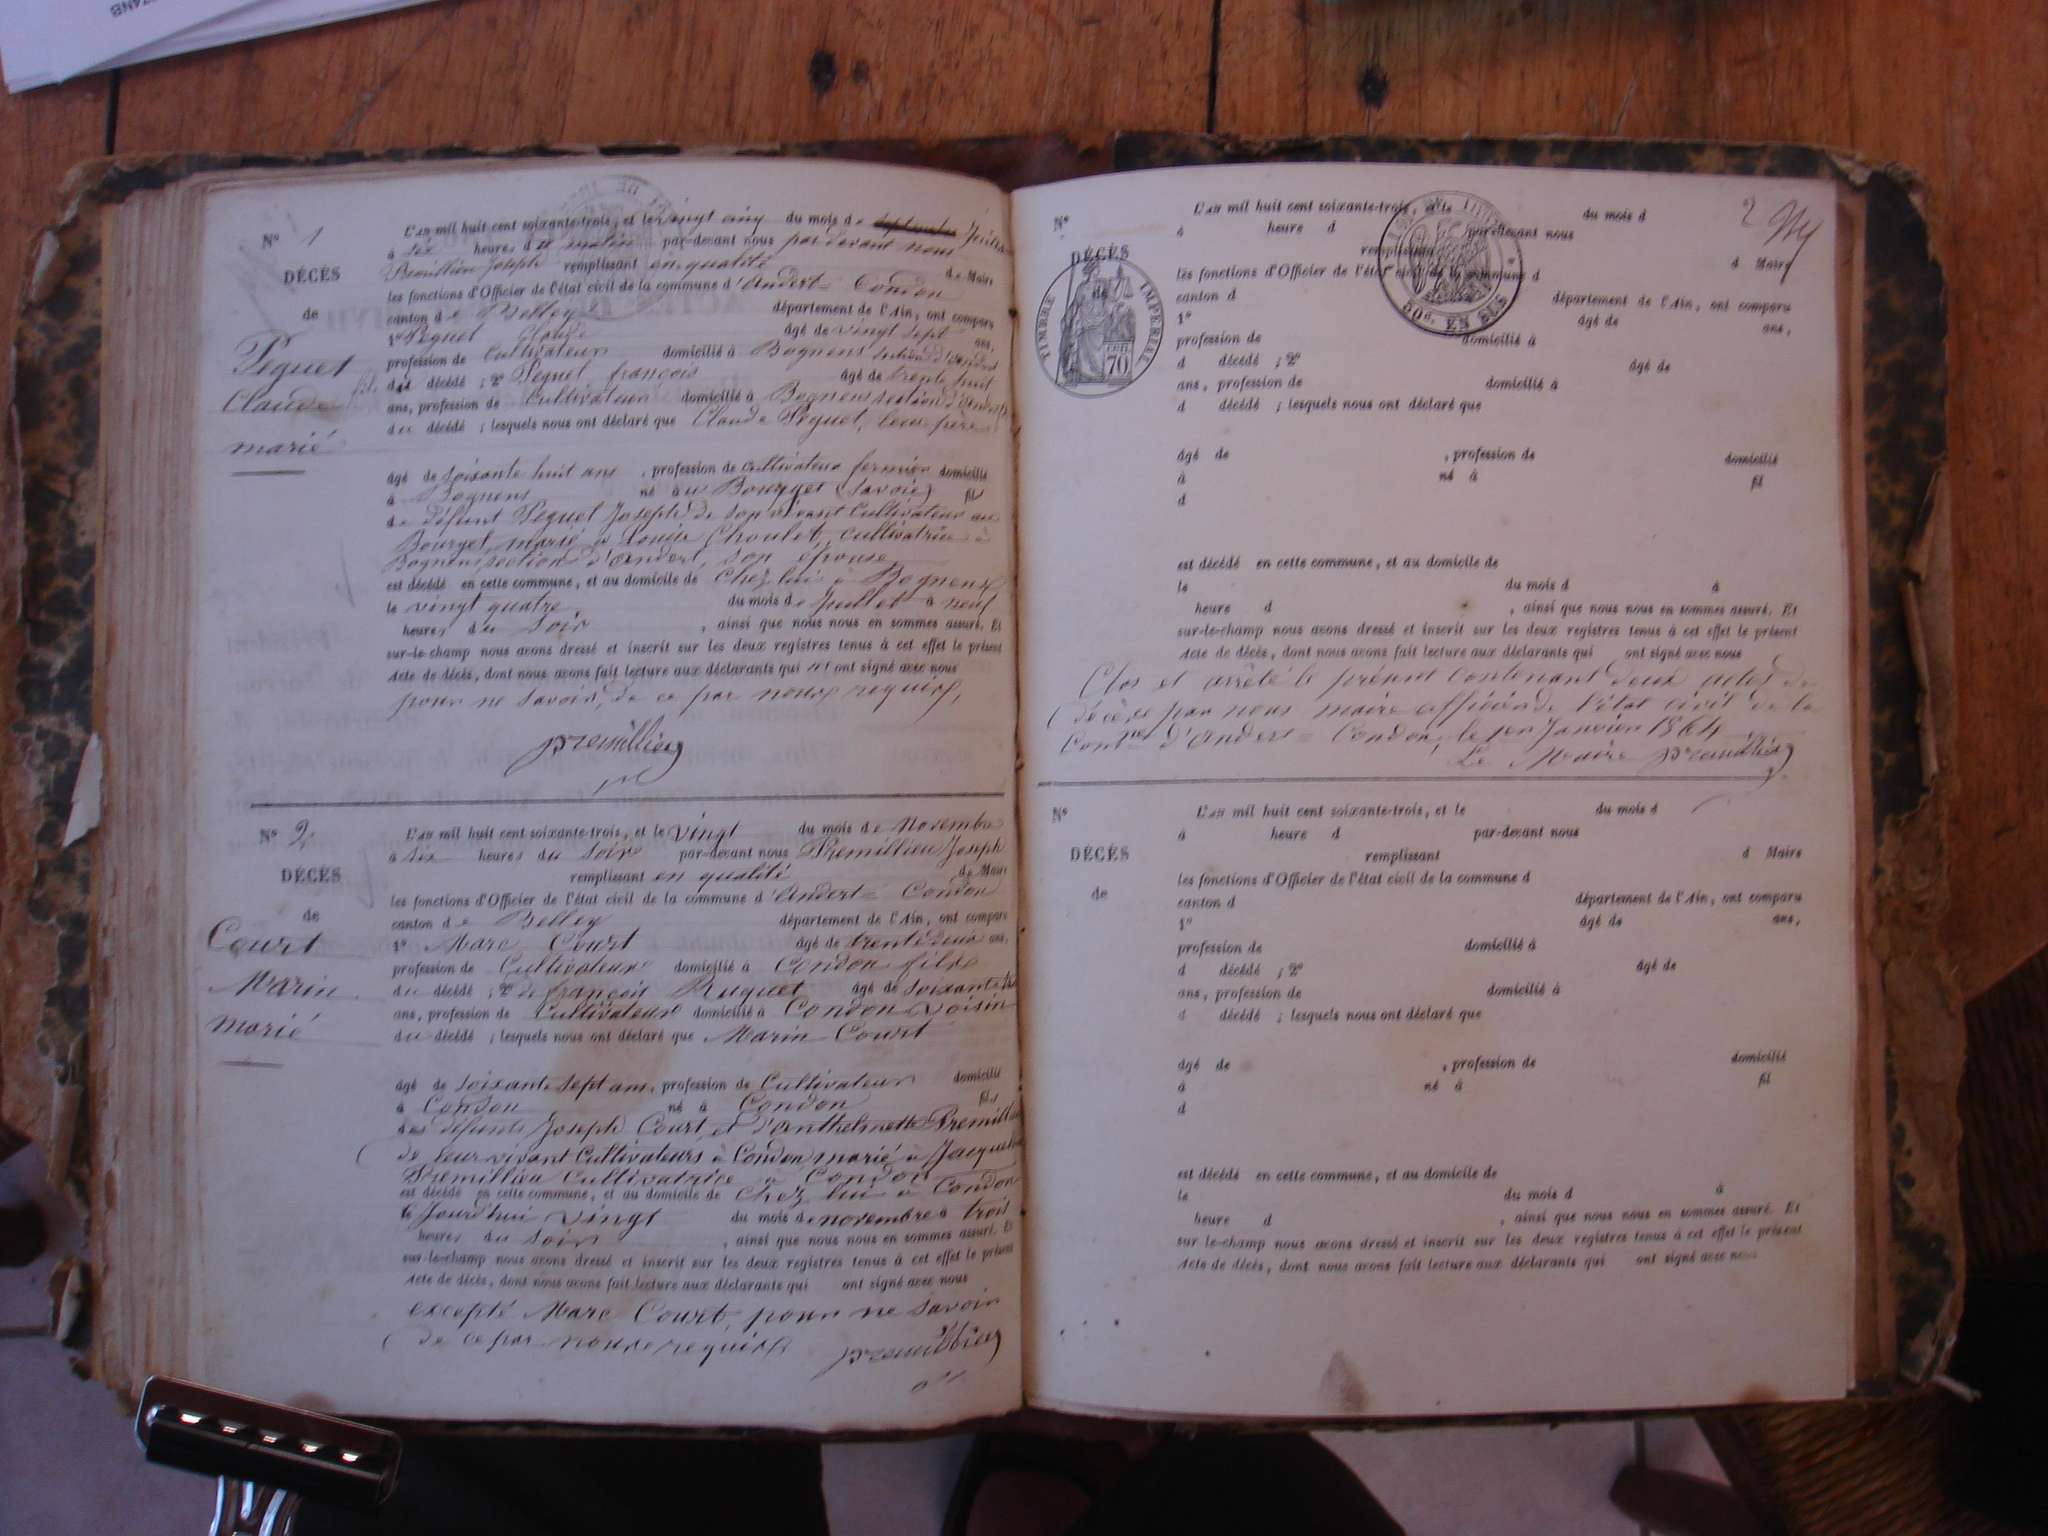 74NB
L'AN mil huit cent soixante-trois, et le vingt cinq du mois de Juillet
N° 1 à six heures du matin par-devant nous par devant nous
Premillieu Joseph remplissant en qualité de Maire
DÉCÈS les fonctions d'Officier de l'état civil de la commune d'Andert-Condon
de canton de Belley département de l'Ain, ont comparu
1° Peguet Claude âgé de vingt sept ans,
Peguet profession de Cultivateur domicilié à Bognens section d'Andert
fils du décédé ; 2° Peguet françois âgé de trente huit
Claude ans, profession de Cultivateur domicilié à Bognens section d'Andert
du décédé ; lesquels nous ont déclaré que Claude Peguet, leur père
marié
âgé de soixante huit ans , profession de cultivateur fermier domicilié
à Bognens né au Bourget (Savoie) fils
de défunt Peguet Joseph de son vivant Cultivateur au
Bourget, marié à Louise Choulet, cultivatrice à
Bognens section d'andert, son épouse
est décédé en cette commune, et au domicile de Chez lui à Bognens
le vingt quatre du mois de Juillet à neuf
heures du soir , ainsi que nous nous en sommes assuré. Et
sur-le-champ nous avons dressé et inscrit sur les deux registres tenus à cet effet le présent
Acte de décès, dont nous avons fait lecture aux déclarants qui n'ont signé avec nous
pour ne savoir, de ce par nous requis,
premillieu
N° 2 L'AN mil huit cent soixante-trois, et le vingt du mois de Novembre
à six heures du soir par-devant nous Premillieu Joseph
DÉCÈS remplissant en qualité de Maire
les fonctions d'Officier de l'état civil de la commune d'Andert-Condon
de canton de Belley département de l'Ain, ont comparu
Court 1° Marc Court âgé de trente deux ans,
profession de Cultivateur domicilié à Condon fils
Marin du décédé ; 2° de françois Ruguet âgé de soixante
ans, profession de Cultivateur domicilié à Condon voisin
marié du décédé ; lesquels nous ont déclaré que Marin Court
âgé de soixante sept ans, profession de Cultivateur domicilié
à Condon né à Condon fils
des défunts Joseph Court et d'Anthelmette
de leur vivant Cultivateurs à Condon marié à
Premillieu Cultivatrice à Condon
est décédé en cette commune, et au domicile de Chez lui à Condon
le Jourd'hui vingt du mois de novembre à trois
heures du soir , ainsi que nous nous en sommes assuré. Et
sur-le-champ nous avons dressé et inscrit sur les deux registres tenus à cet effet le présent
Acte de décès, dont nous avons fait lecture aux déclarants qui ont signé avec nous
excepté Marc Court, pour ne savoir
de ce par nous requis
premillieu
2
N° L'AN mil huit cent soixante-trois, et le du mois d
à heure d par-devant nous
DÉCÈS remplissant d Maire
les fonctions d'Officier de l'état civil de la commune d
de canton d département de l'Ain, ont comparu
TIMBRE IMPERIAL
70
50c. EN SUS
1° âgé de ans,
profession de domicilié à
d décédé ; 2° âgé de
ans, profession de domicilié à
d décédé ; lesquels nous ont déclaré que
âgé de , profession de domicilié
à né à fil
d
est décédé en cette commune, et au domicile de
le du mois d à
heure d , ainsi que nous nous en sommes assuré. Et
sur-le-champ nous avons dressé et inscrit sur les deux registres tenus à cet effet le présent
Acte de décès, dont nous avons fait lecture aux déclarants qui ont signé avec nous
Clos et arrêté le présent Contenant deux actes de
décès par nous maire officier de l'état civil de la
d'Andert-Condon, le 1er Janvier 1864
Le Maire premillieu
N° L'AN mil huit cent soixante-trois, et le du mois d
à heure d par-devant nous
DÉCÈS remplissant d Maire
les fonctions d'Officier de l'état civil de la commune d
de canton d département de l'Ain, ont comparu
1° âgé de ans,
profession de domicilié à
d décédé ; 2° âgé de
ans, profession de domicilié à
d décédé ; lesquels nous ont déclaré que
âgé de , profession de domicilié
à né à fil
d
est décédé en cette commune, et au domicile de
le du mois d à
heure d , ainsi que nous nous en sommes assuré. Et
sur-le-champ nous avons dressé et inscrit sur les deux registres tenus à cet effet le présent
Acte de décès, dont nous avons fait lecture aux déclarants qui ont signé avec nous